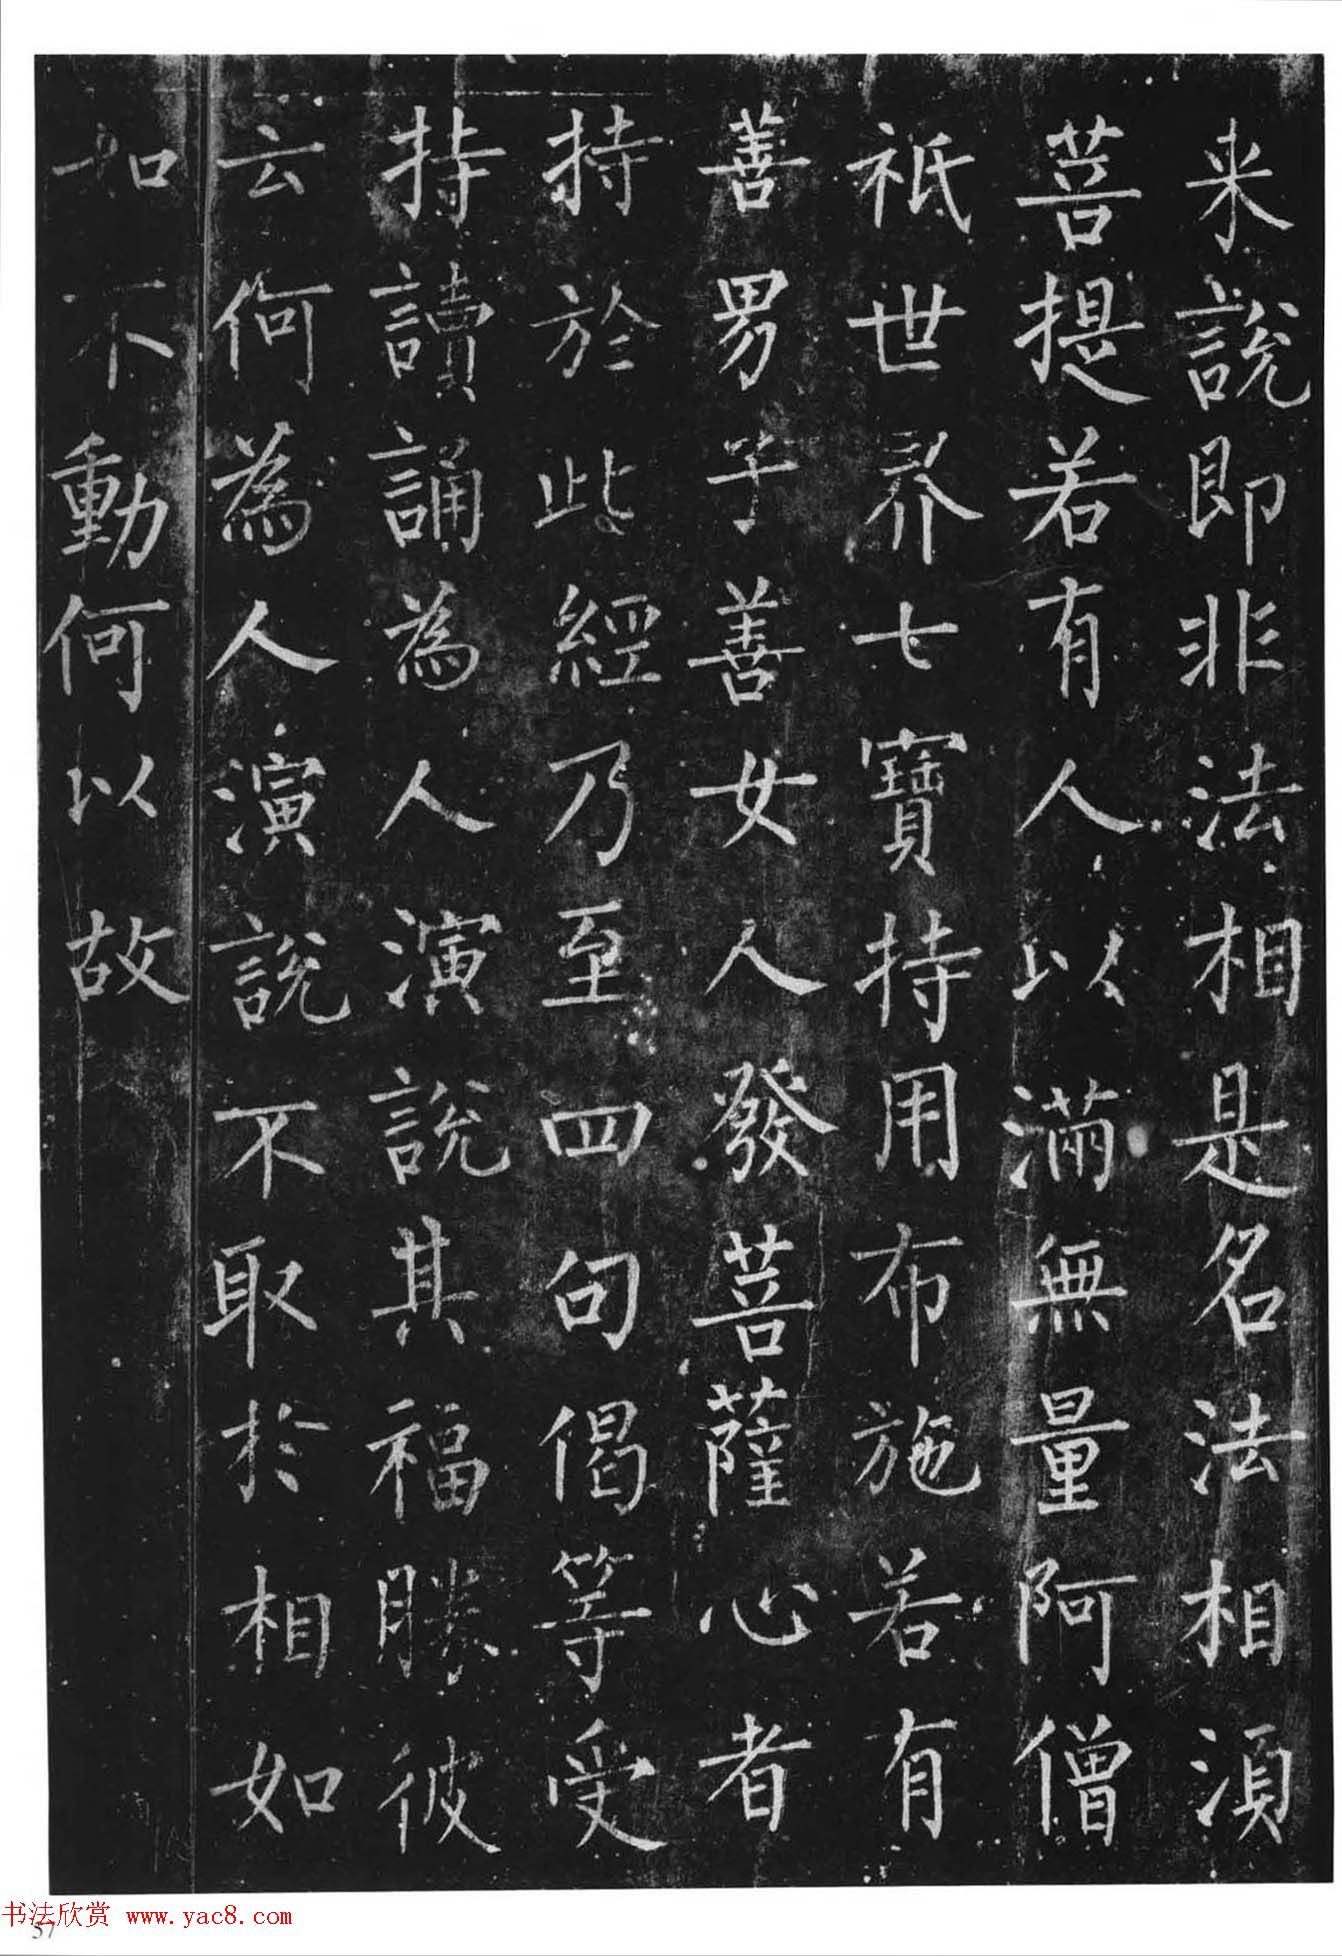 来說即非法相是名法相湏
菩提若有人以滿無量阿僧
祇世界七寶持用布施若有
善男子善女人發菩薩心者
持於此經乃至四句偈等受
持讀誦為人演說其福勝彼
云何為人演說不取於相如
如不動何以故
书法欣赏 www.yac8.com
57